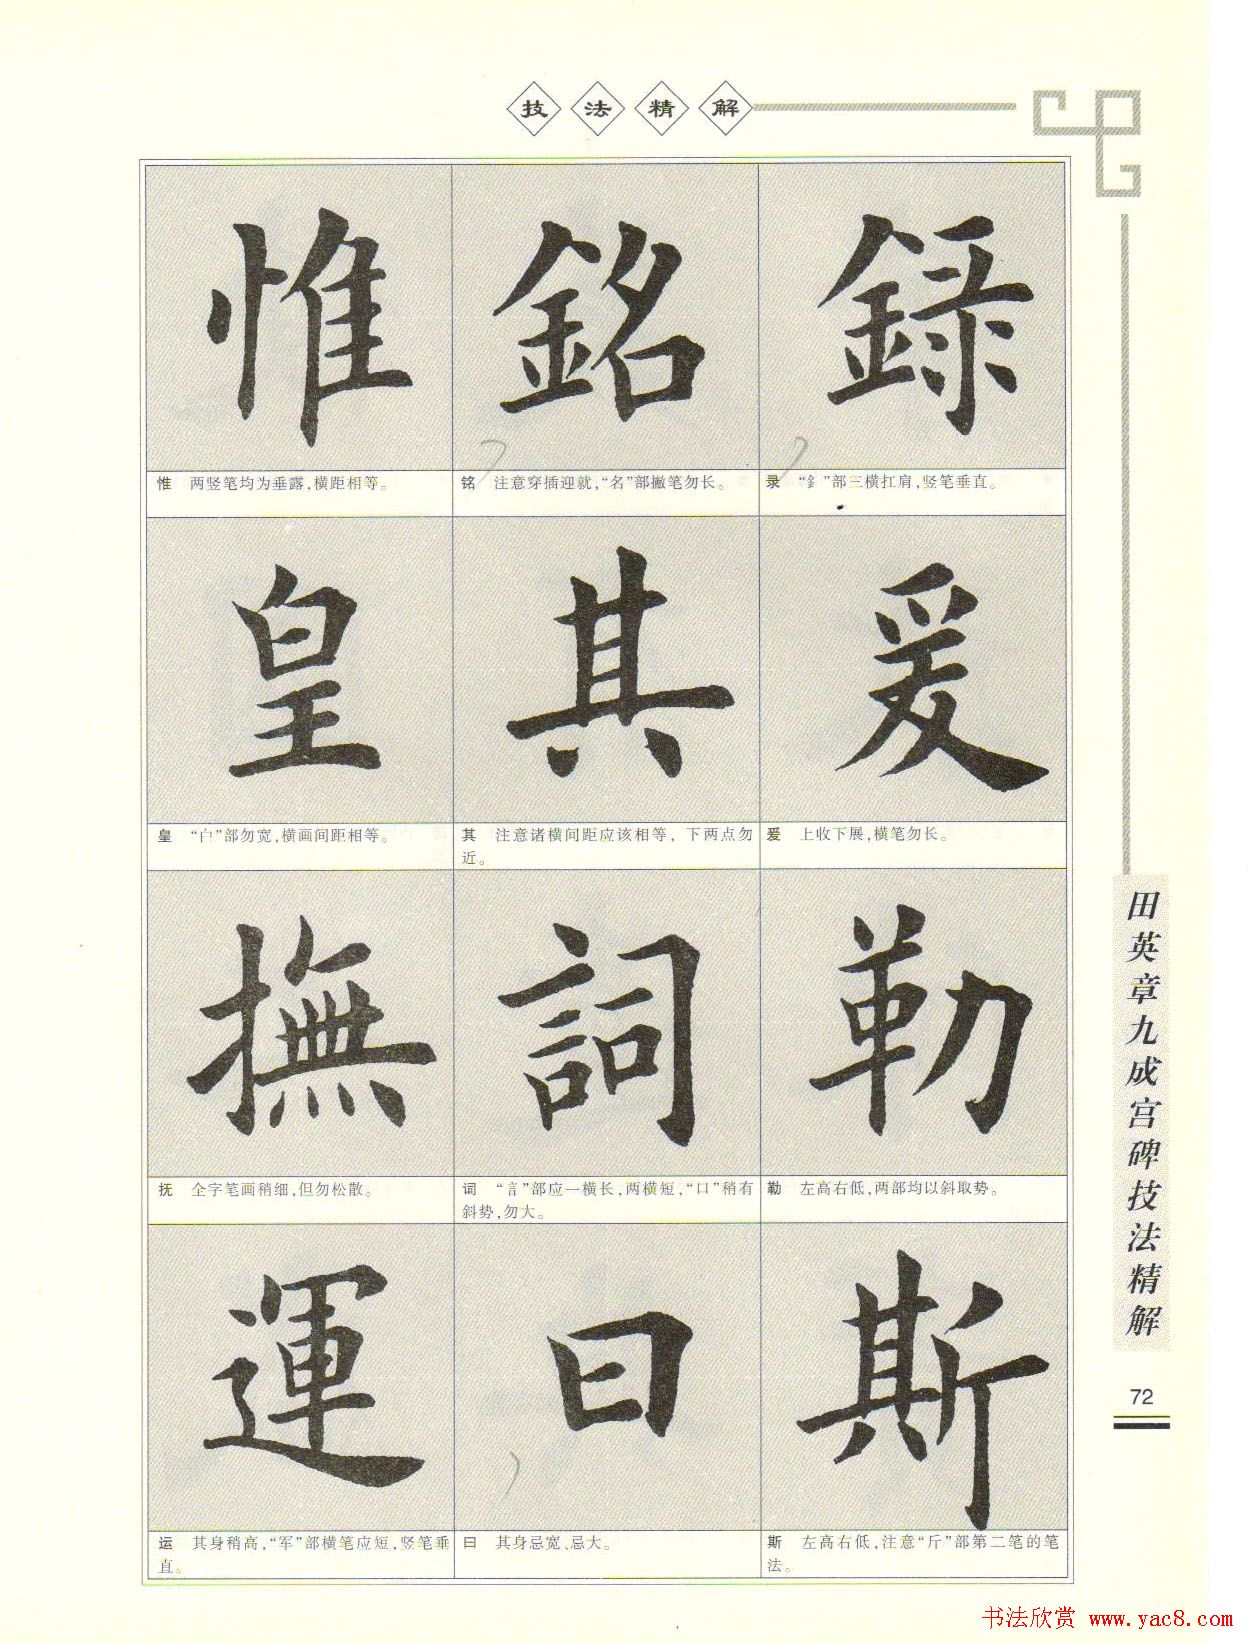 技法精解
惟 銘 錄
惟 两竖笔均为垂露,横距相等。
铭 注意穿插迎就,“名”部撇笔勿长。
录 “釒”部三横扛肩,竖笔垂直。
皇 其 爰
皇 “白”部勿宽,横画间距相等。
其 注意诸横间距应该相等，下两点勿
近。
爰 上收下展,横笔勿长。
撫 詞 勒
抚 全字笔画稍细,但勿松散。
词 “言”部应一横长,两横短,“口”稍有
斜势,勿大。
勒 左高右低,两部均以斜取势。
運 曰 斯
运 其身稍高,“军”部横笔应短,竖笔垂
直。
曰 其身忌宽、忌大。
斯 左高右低,注意“斤”部第二笔的笔
法。
田英章九成宫碑技法精解
72
书法欣赏 www.yac8.com